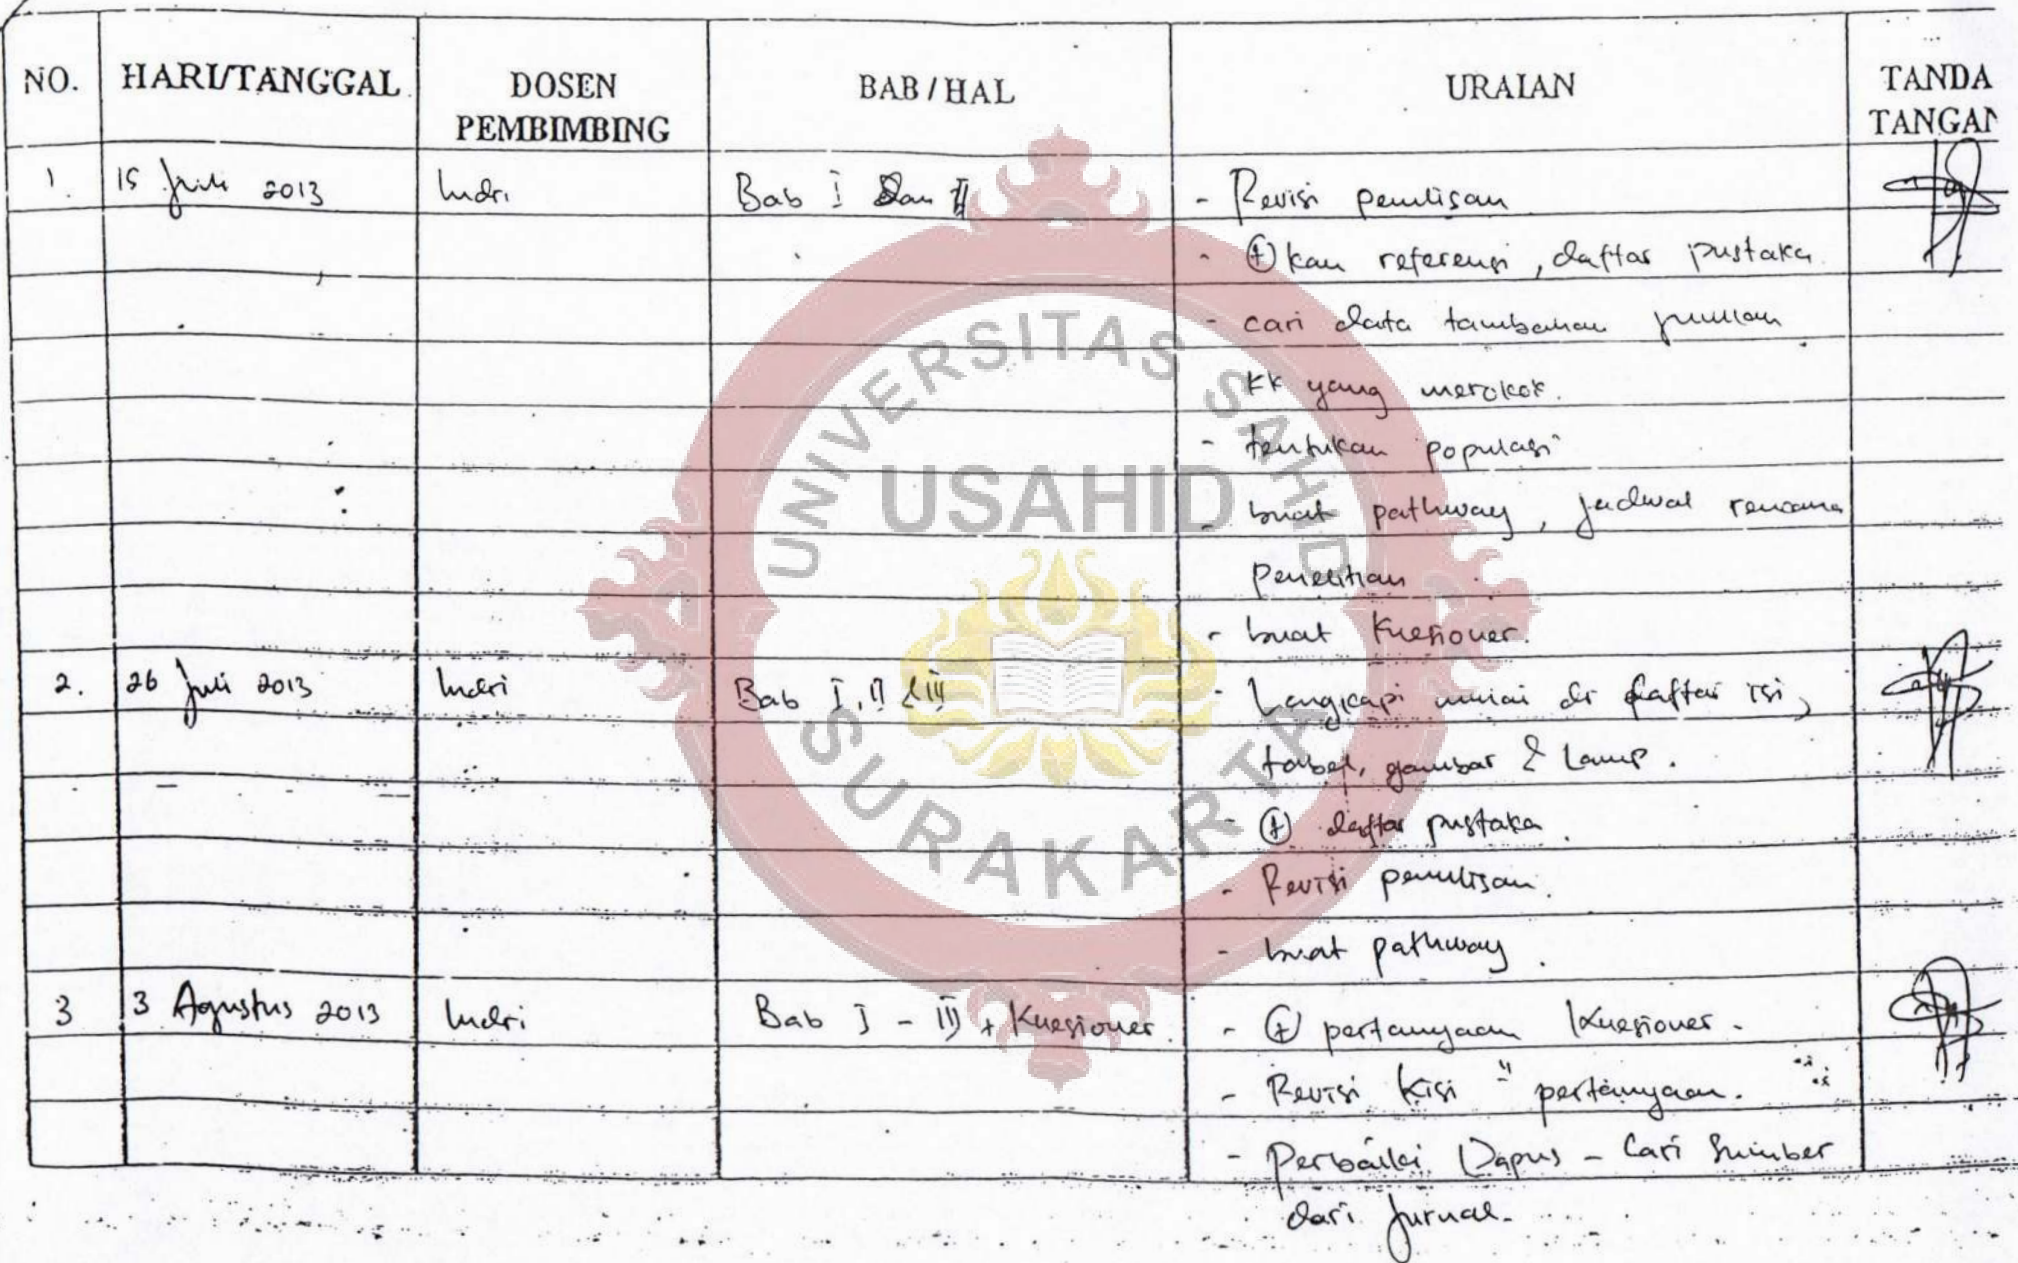 NO. HARI/TANGGAL DOSEN PEMBIMBING BAB / HAL URAIAN TANDA TANGAN
1. 15 Juli 2013 Indri Bab I dan II - Revisi penulisan
- (+) kan referensi, daftar pustaka
- cari data tambahan jumlah
KK yang merokok.
- tentukan populasi
- buat pathway, jadwal rencana
penelitian
- buat kuesioner.
2. 26 Juli 2013 Indri Bab I, II & III - Lengkapi mulai dr daftar isi,
tabel, gambar & Lamp.
- (+) daftar pustaka.
- Revisi penulisan.
- buat pathway.
3 3 Agustus 2013 Indri Bab I - III + Kuesioner - (+) pertanyaan kuesioner.
- Revisi kisi " pertanyaan.
- Perbaiki Dapus - Cari sumber
dari jurnal.
UNIVERSITAS SAHID
USAHID
SURAKARTA